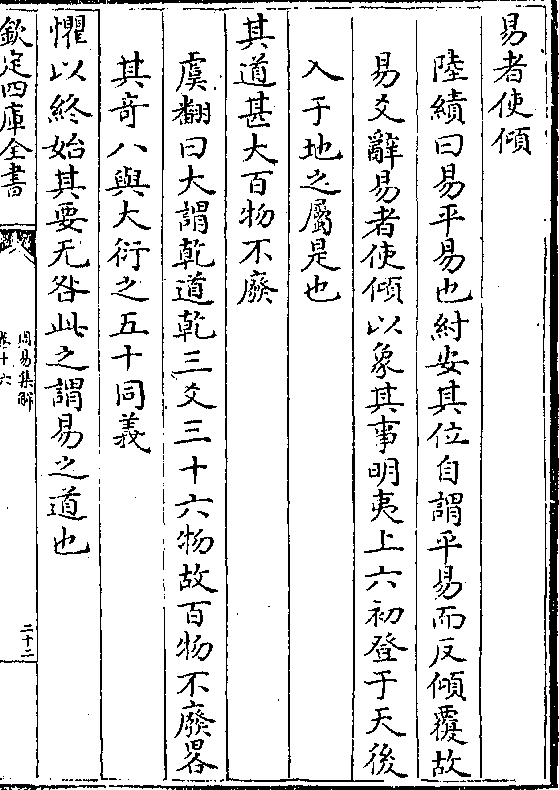 易者使傾
陸績曰易平易也紂安其位自謂平易而反傾覆故
易爻辭易者使傾以象其事明夷上六初登于天後
入于地之屬是也
其道甚大百物不廢
虞翻曰大謂乾道乾三爻三十六物故百物不廢畧
其奇八與大衍之五十同義
懼以終始其要无咎此之謂易之道也
欽定四庫全書
周易集解
卷十六
二十二